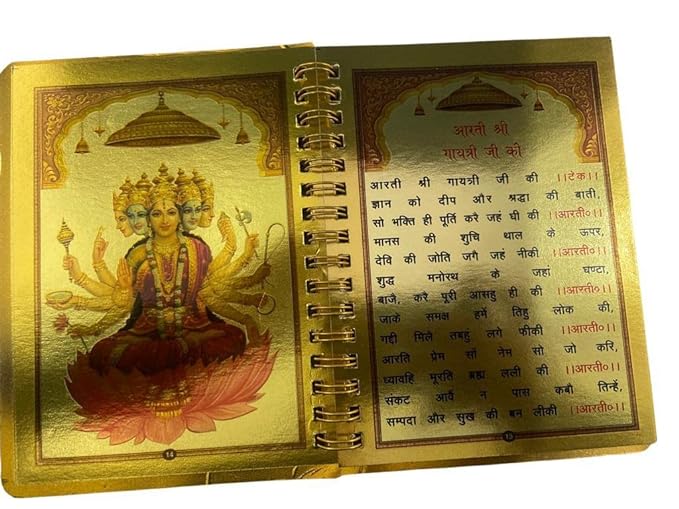 14
आरती श्री
गायत्री जी की
आरती श्री गायत्री जी की ।।टेक।।
ज्ञान को दीप और श्रद्धा की बाती,
सो भक्ति ही पूर्ति करे जहं घी की ।।आरती०।।
मानस की शुचि थाल के ऊपर,
देवि की जोति जगै जहं नीकी ।।आरती०।।
शुद्ध मनोरथ के जहां घण्टा,
बाजै, करै पूरी आसहु ही की ।।आरती०।।
जाके समक्ष हमें तिहु लोक की,
गद्दी मिले तबहु लगे फीकी ।।आरती०।।
आरति प्रेम सों नेम सो जो करि,
ध्यावहि मूरति ब्रह्म लली की ।।आरती०।।
संकट आवैं न पास कबी तिन्हें,
सम्पदा और सुख की बन लीकी ।।आरती०।।
15